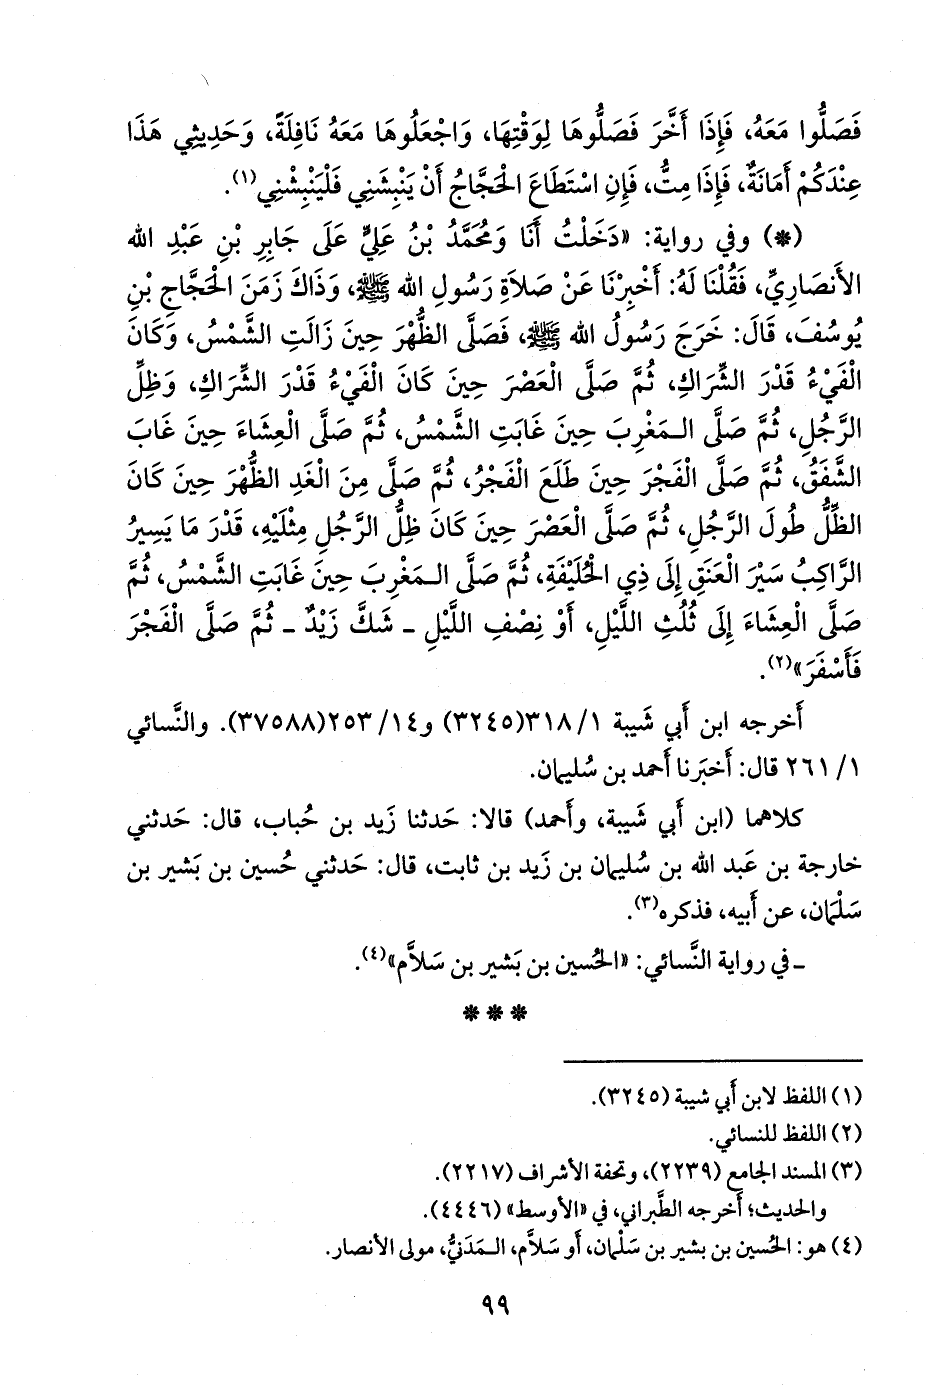 فَصَلُّوا مَعَهُ، فَإِذَا أَخَّرَ فَصَلُّوهَا لِوَقْتِهَا، وَاجْعَلُوهَا مَعَهُ نَافِلَةً، وَحَدِيثِي هَذَا
عِنْدَكُمْ أَمَانَةٌ، فَإِذَا مِتُّ، فَإِنِ اسْتَطَاعَ الْحَجَّاجُ أَنْ يَنْبِشَنِي فَلْيَنْبِشْنِي(١).
(*) وفي رواية: «دَخَلْتُ أَنَا وَمُحَمَّدُ بْنُ عَلِيٍّ عَلَى جَابِرِ بْنِ عَبْدِ الله
الأَنْصَارِيِّ، فَقُلْنَا لَهُ: أَخْبِرْنَا عَنْ صَلاَةِ رَسُولِ الله ﷺ، وَذَاكَ زَمَنَ الْحَجَّاجِ بْنِ
يُوسُفَ، قَالَ: خَرَجَ رَسُولُ الله ﷺ، فَصَلَّى الظُّهْرَ حِينَ زَالَتِ الشَّمْسُ، وَكَانَ
الْفَيْءُ قَدْرَ الشِّرَاكِ، ثُمَّ صَلَّى الْعَصْرَ حِينَ كَانَ الْفَيْءُ قَدْرَ الشِّرَاكِ، وَظِلِّ
الرَّجُلِ، ثُمَّ صَلَّى الْمَغْرِبَ حِينَ غَابَتِ الشَّمْسُ، ثُمَّ صَلَّى الْعِشَاءَ حِينَ غَابَ
الشَّفَقُ، ثُمَّ صَلَّى الْفَجْرَ حِينَ طَلَعَ الْفَجْرُ، ثُمَّ صَلَّى مِنَ الْغَدِ الظُّهْرَ حِينَ كَانَ
الظِّلُّ طُولَ الرَّجُلِ، ثُمَّ صَلَّى الْعَصْرَ حِينَ كَانَ ظِلُّ الرَّجُلِ مِثْلَيْهِ، قَدْرَ مَا يَسِيرُ
الرَّاكِبُ سَيْرَ الْعَنَقِ إِلَى ذِي الْحُلَيْفَةِ، ثُمَّ صَلَّى الْمَغْرِبَ حِينَ غَابَتِ الشَّمْسُ، ثُمَّ
صَلَّى الْعِشَاءَ إِلَى ثُلُثِ اللَّيْلِ، أَوْ نِصْفِ اللَّيْلِ ـ شَكَّ زَيْدٌ ـ ثُمَّ صَلَّى الْفَجْرَ
فَأَسْفَرَ»(٢).
أَخرجه ابن أَبي شَيبة ١/ ٣١٨(٣٢٤٥) و١٤/ ٢٥٣(٣٧٥٨٨). والنَّسائي
١/ ٢٦١ قال: أَخبَرنا أَحمد بن سُليمان.
كلاهما (ابن أَبي شَيبة، وأَحمد) قالا: حَدثنا زَيد بن حُباب، قال: حَدثني
خارجة بن عَبد الله بن سُليمان بن زَيد بن ثابت، قال: حَدثني حُسين بن بَشير بن
سَلْمان، عن أَبيه، فذكره(٣).
ـ في رواية النَّسائي: «الحُسين بن بَشير بن سَلاَّم»(٤).
* * *
(١) اللفظ لابن أَبي شيبة (٣٢٤٥).
(٢) اللفظ للنسائي.
(٣) المسند الجامع (٢٢٣٩)، وتحفة الأشراف (٢٢١٧).
والحديث؛ أَخرجه الطَّبراني، في «الأوسط» (٤٤٤٦).
(٤) هو: الحُسين بن بشير بن سَلْمان، أَو سَلاَّم، الـمَدَنيُّ، مولى الأنصار.
٩٩